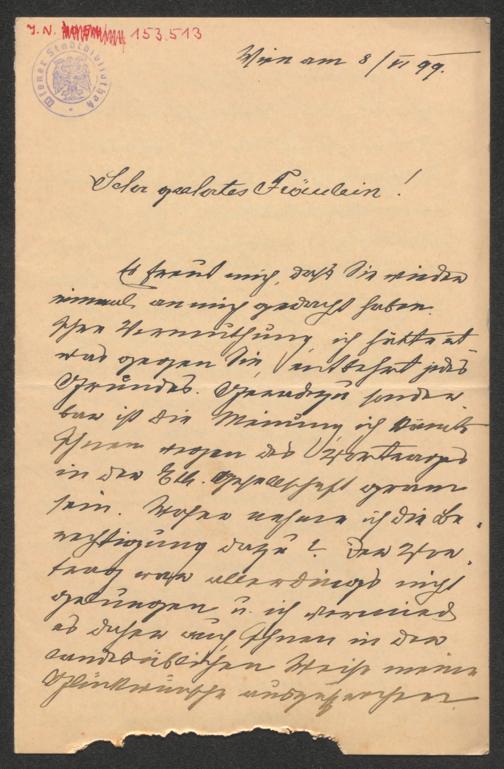 J. N. 153.513
Wiener Stadtbibliothek
Wien am 8/VI 99.
Sehr geehrtes Fräulein!
Es freut mich, daß Sie wieder
einmal an mich gedacht haben.
Ihre Vermuthung ich hätte et
was gegen Sie entbehrt jedes
Grundes. Geradezu sonder
bar ist die Meinung ich könnte
Ihnen wegen des Vortrages
in der Eth. Gesellschaft gram
sein. Woher nehme ich die Be-
rechtigung dazu? Der Vor-
trag war allerdings nicht
gelungen u. ich vermied
es daher auch Ihnen in der
landesüblichen Weise meine
Glückwünsche auszusprechen.